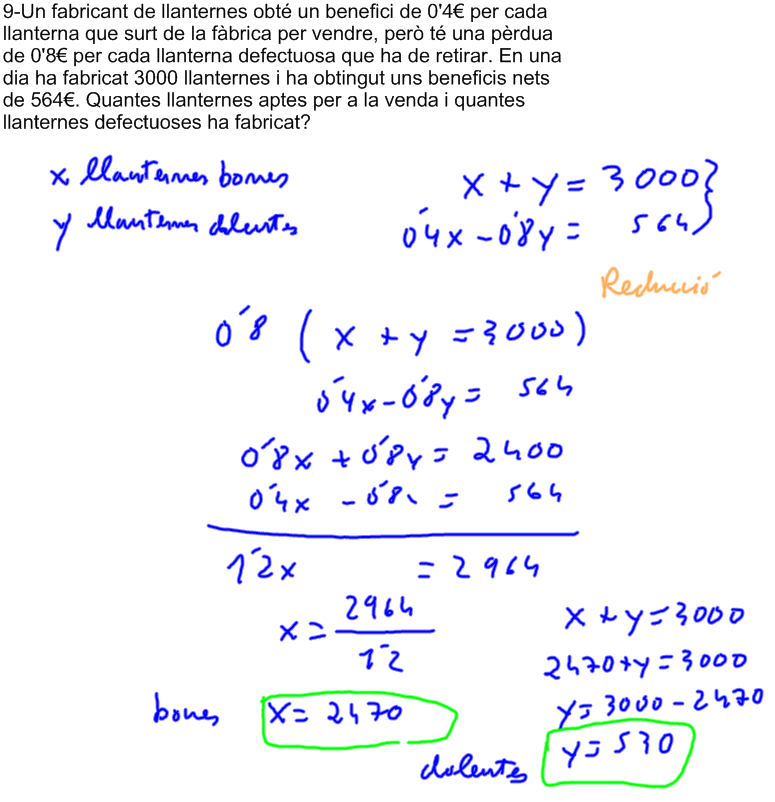 9-Un fabricant de llanternes obté un benefici de 0'4€ per cada
llanterna que surt de la fàbrica per vendre, però té una pèrdua
de 0'8€ per cada llanterna defectuosa que ha de retirar. En una
dia ha fabricat 3000 llanternes i ha obtingut uns beneficis nets
de 564€. Quantes llanternes aptes per a la venda i quantes
llanternes defectuoses ha fabricat?
x llanternes bones
y llanternes dolentes
x + y = 3000}
0'4x - 0'8y = 564
Reducció
0'8 ( x + y = 3000)
0'4x - 0'8y = 564
0'8x + 0'8y = 2400
0'4x - 0'8y = 564
1'2x = 2964
x = 2964/1'2
bones x = 2470
x + y = 3000
2470 + y = 3000
y = 3000 - 2470
dolentes y = 530